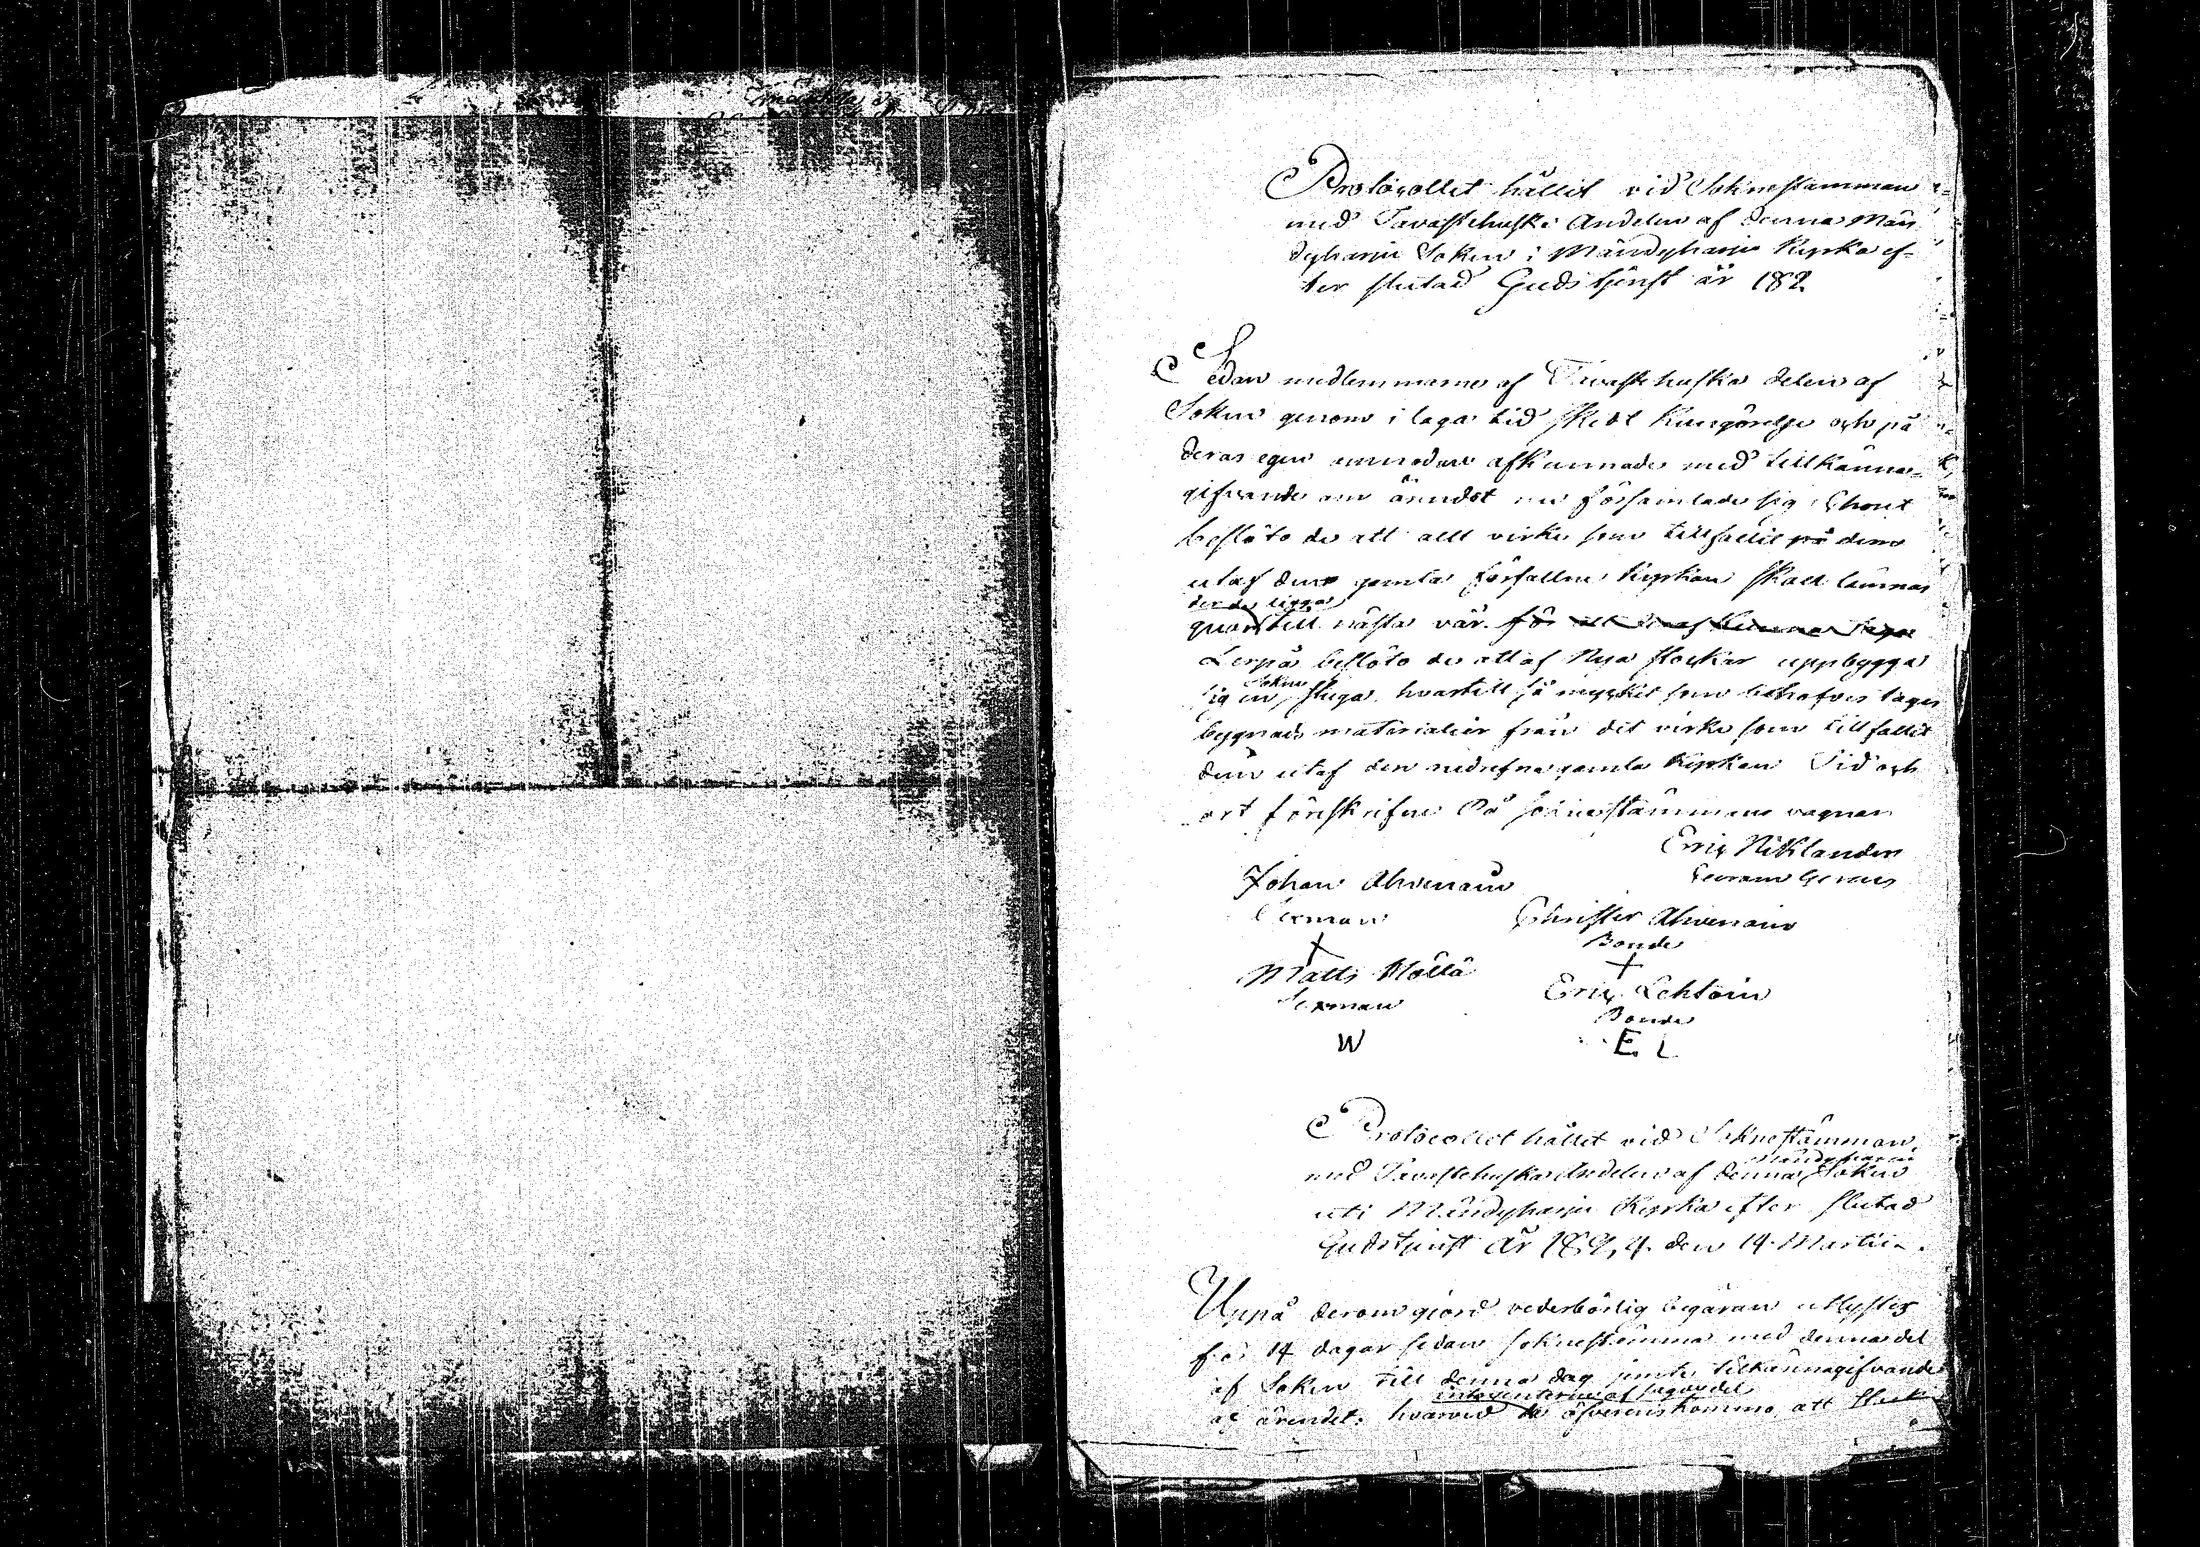 Protocollet hållit vid Soknestamman
med Tavastehuska Andelen af denna Män
dyharju Soken i Mändyharju Kyrka ef-
ter slutad Gudstjenst år 182
Sedan medlemmarne af Tavastehuska delen af
Soken genom i laga tid skedt Kungörelse och på
deras egen afkunnade med tillkänna-
gifvande om ärendet nu församlade sig
beslöto de att allt virke som tillfallit på dem
utaf den gamla förfallne Kyrkan skall lämnas
der de ligga
quar till nästa vår för att
Derpå beslöto de att af Nya stockar uppbygga
Sokne
sig en stuga hvartill så mycket som behöfves tages
bygnads materialier från det virke som tillfallit
dem utaf den nedrefna gamla Kyrkan Tid och
ort föreskrifne På soknestämmans vägnar
Eric Niklander
Johan Ahvenain
Sexman
Christer Ahvenain
Bonde
Matts Möllä
Sexman
Eric Lehtoin
Bonde
W
E. L
Protocollet hållet vid Soknestämman
Mändyharju
med Tavastehuska Andelen af denna Soken
uti Mändyharju Kyrka efter slutad
Gudstjenst År den 14 Martii
Uppå derom gjord vederbörlig begäran utlystes
för 14 dagar sedan soknestämma med denna del
af Soken till denna dag jemte tilkännagifvande
af ärendet: hvarvid de öfverenskommo att